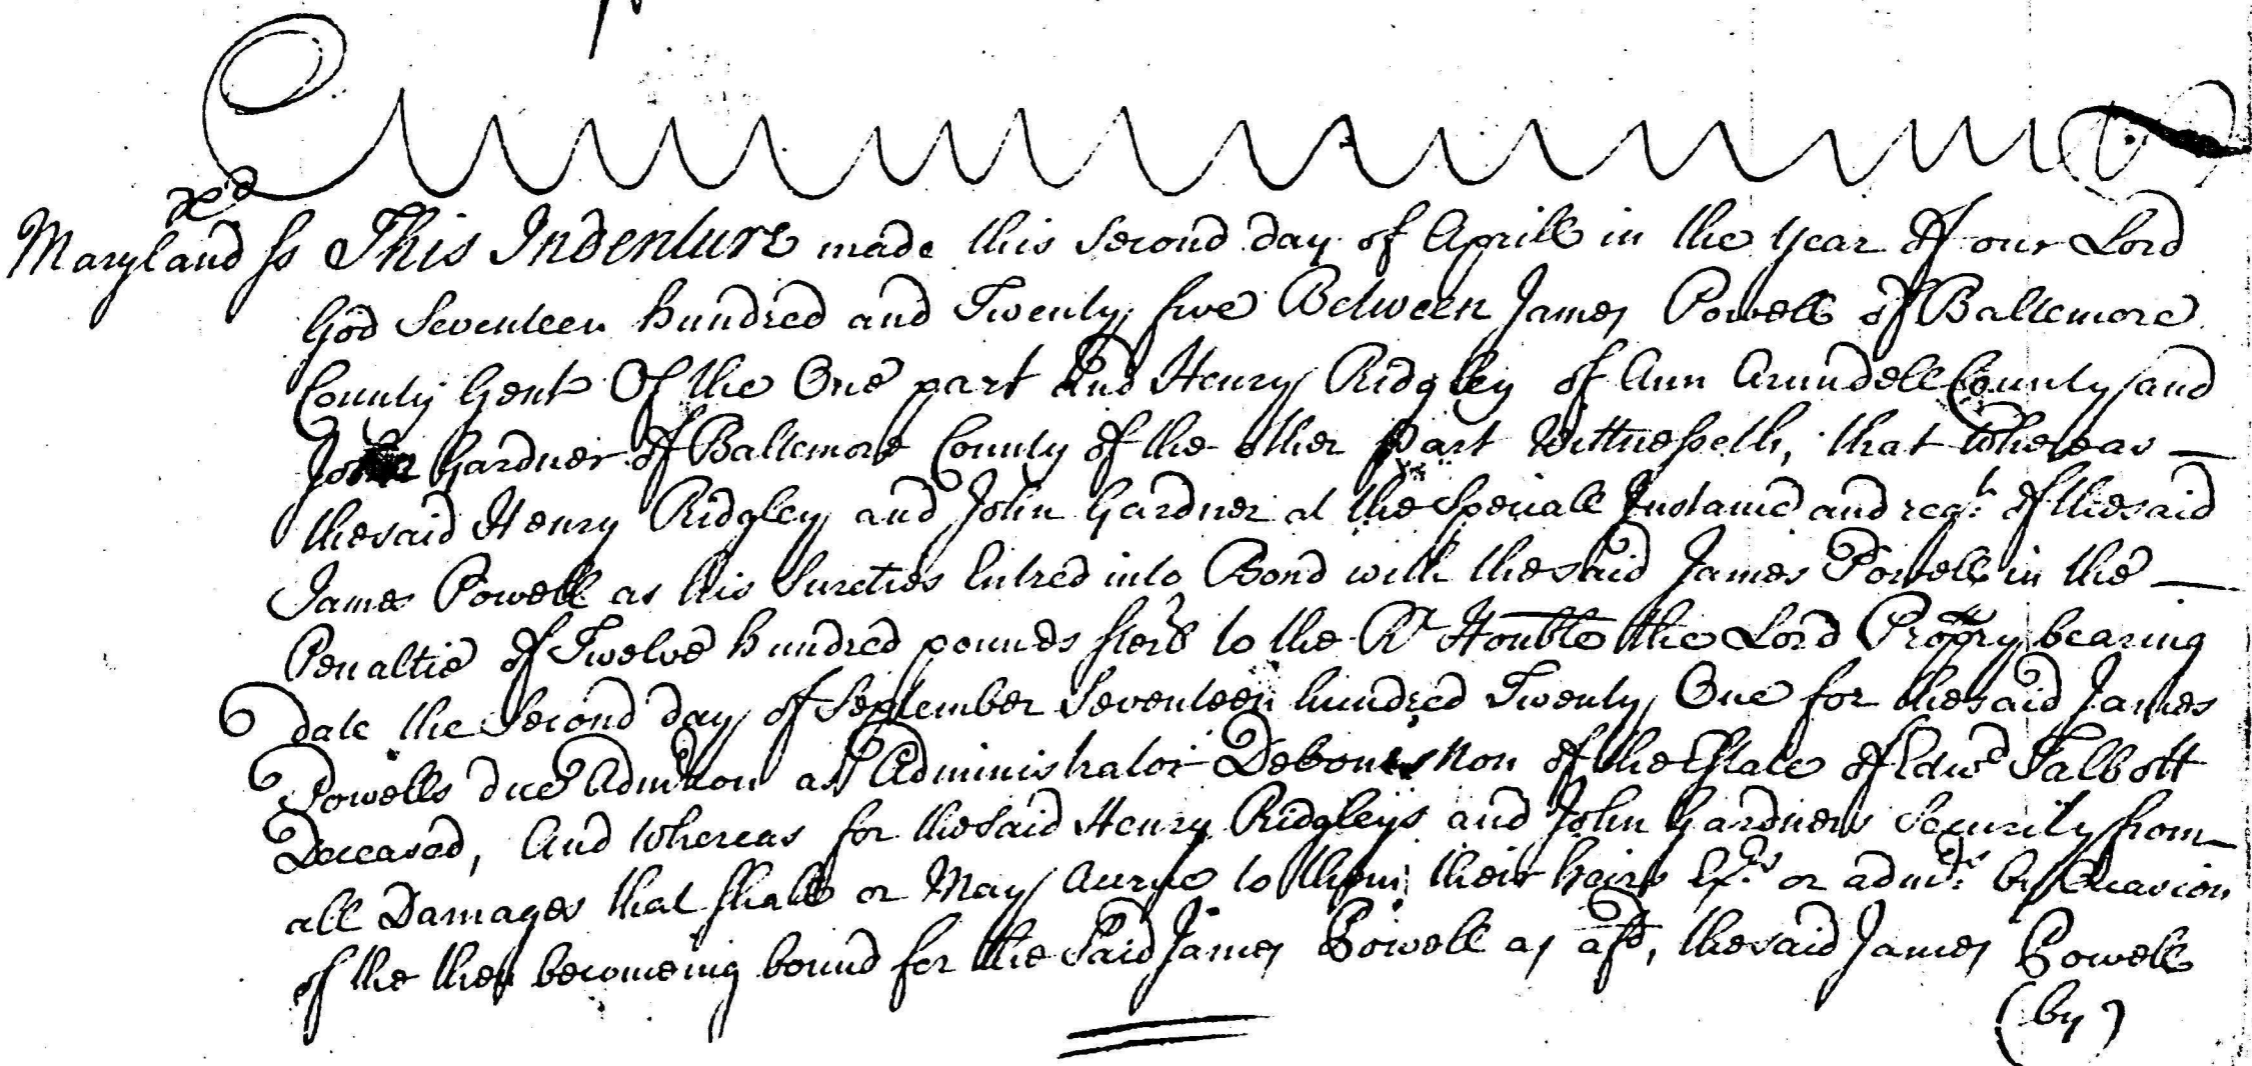 Exd
Maryland ss This Indenture made this Second day of Aprill in the Year Of our Lord
God Seventeen hundred and Twenty five Between James Powell of Baltemore
County Gent Of the One part And Henry Ridgley of Ann Arundell County and
John Gardner of Baltemore County Of the other Part Wittnesseth, that Whereas —
the said Henry Ridgley and John Gardner at the Speciall Instance and reqt. Of the said
James Powell as his Sureties Entred into Bond with the said James Powell in the —
Penaltie Of Twelve hundred pounds sterl to the Rt Honble the Lord Propry bearing
Date the Second day of September Seventeen hundred Twenty One for the said James
Powells due Admicon as Administrator Debonis Non Of the Estate Of Edwd Talbott
Deceased, And Whereas for the Said Henry Ridgleys and John Gardners Security from
all Damages that shall or May Accrue to them their heirs Exrs or admrs by Occasion
of the their becomeing bound for the Said James Powell as afd, the said James Powell
(by)